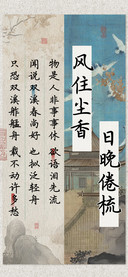 风住尘香
日晚倦梳
物是人非事事休 欲语泪先流
闻说双溪春尚好 也拟泛轻舟
只恐双溪舴艋舟 载不动许多愁